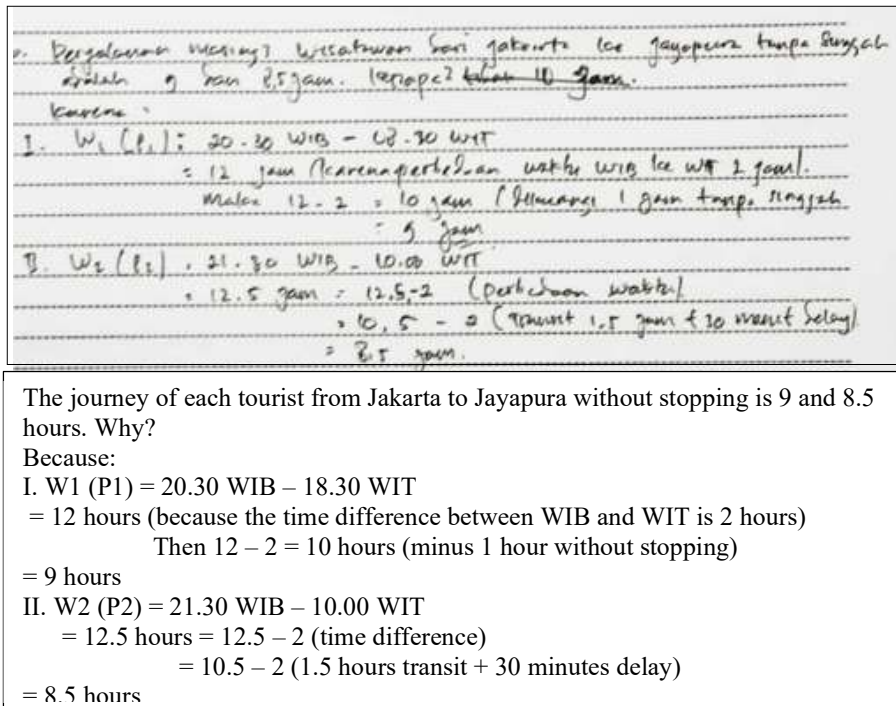 Perjalanan masing2 wisatawan dari Jakarta ke Jayapura tanpa singgah
adalah 9 dan 8,5 jam. kenapa?
karena :
I. W1 (P1) : 20.30 WIB - 08.30 WIT
= 12 jam (karena perbedaan waktu WIB ke WIT 2 jam).
Maka 12 - 2 = 10 jam (dikurangi 1 jam tanpa singgah
= 9 jam
II. W2 (P2) : 21.30 WIB - 10.00 WIT
= 12.5 jam = 12,5-2 (perbedaan waktu)
= 10,5 - 2 (transit 1.5 jam + 30 menit delay)
= 8.5 jam.
The journey of each tourist from Jakarta to Jayapura without stopping is 9 and 8.5
hours. Why?
Because:
I. W1 (P1) = 20.30 WIB – 18.30 WIT
= 12 hours (because the time difference between WIB and WIT is 2 hours)
Then 12 – 2 = 10 hours (minus 1 hour without stopping)
= 9 hours
II. W2 (P2) = 21.30 WIB – 10.00 WIT
= 12.5 hours = 12.5 – 2 (time difference)
= 10.5 – 2 (1.5 hours transit + 30 minutes delay)
= 8.5 hours